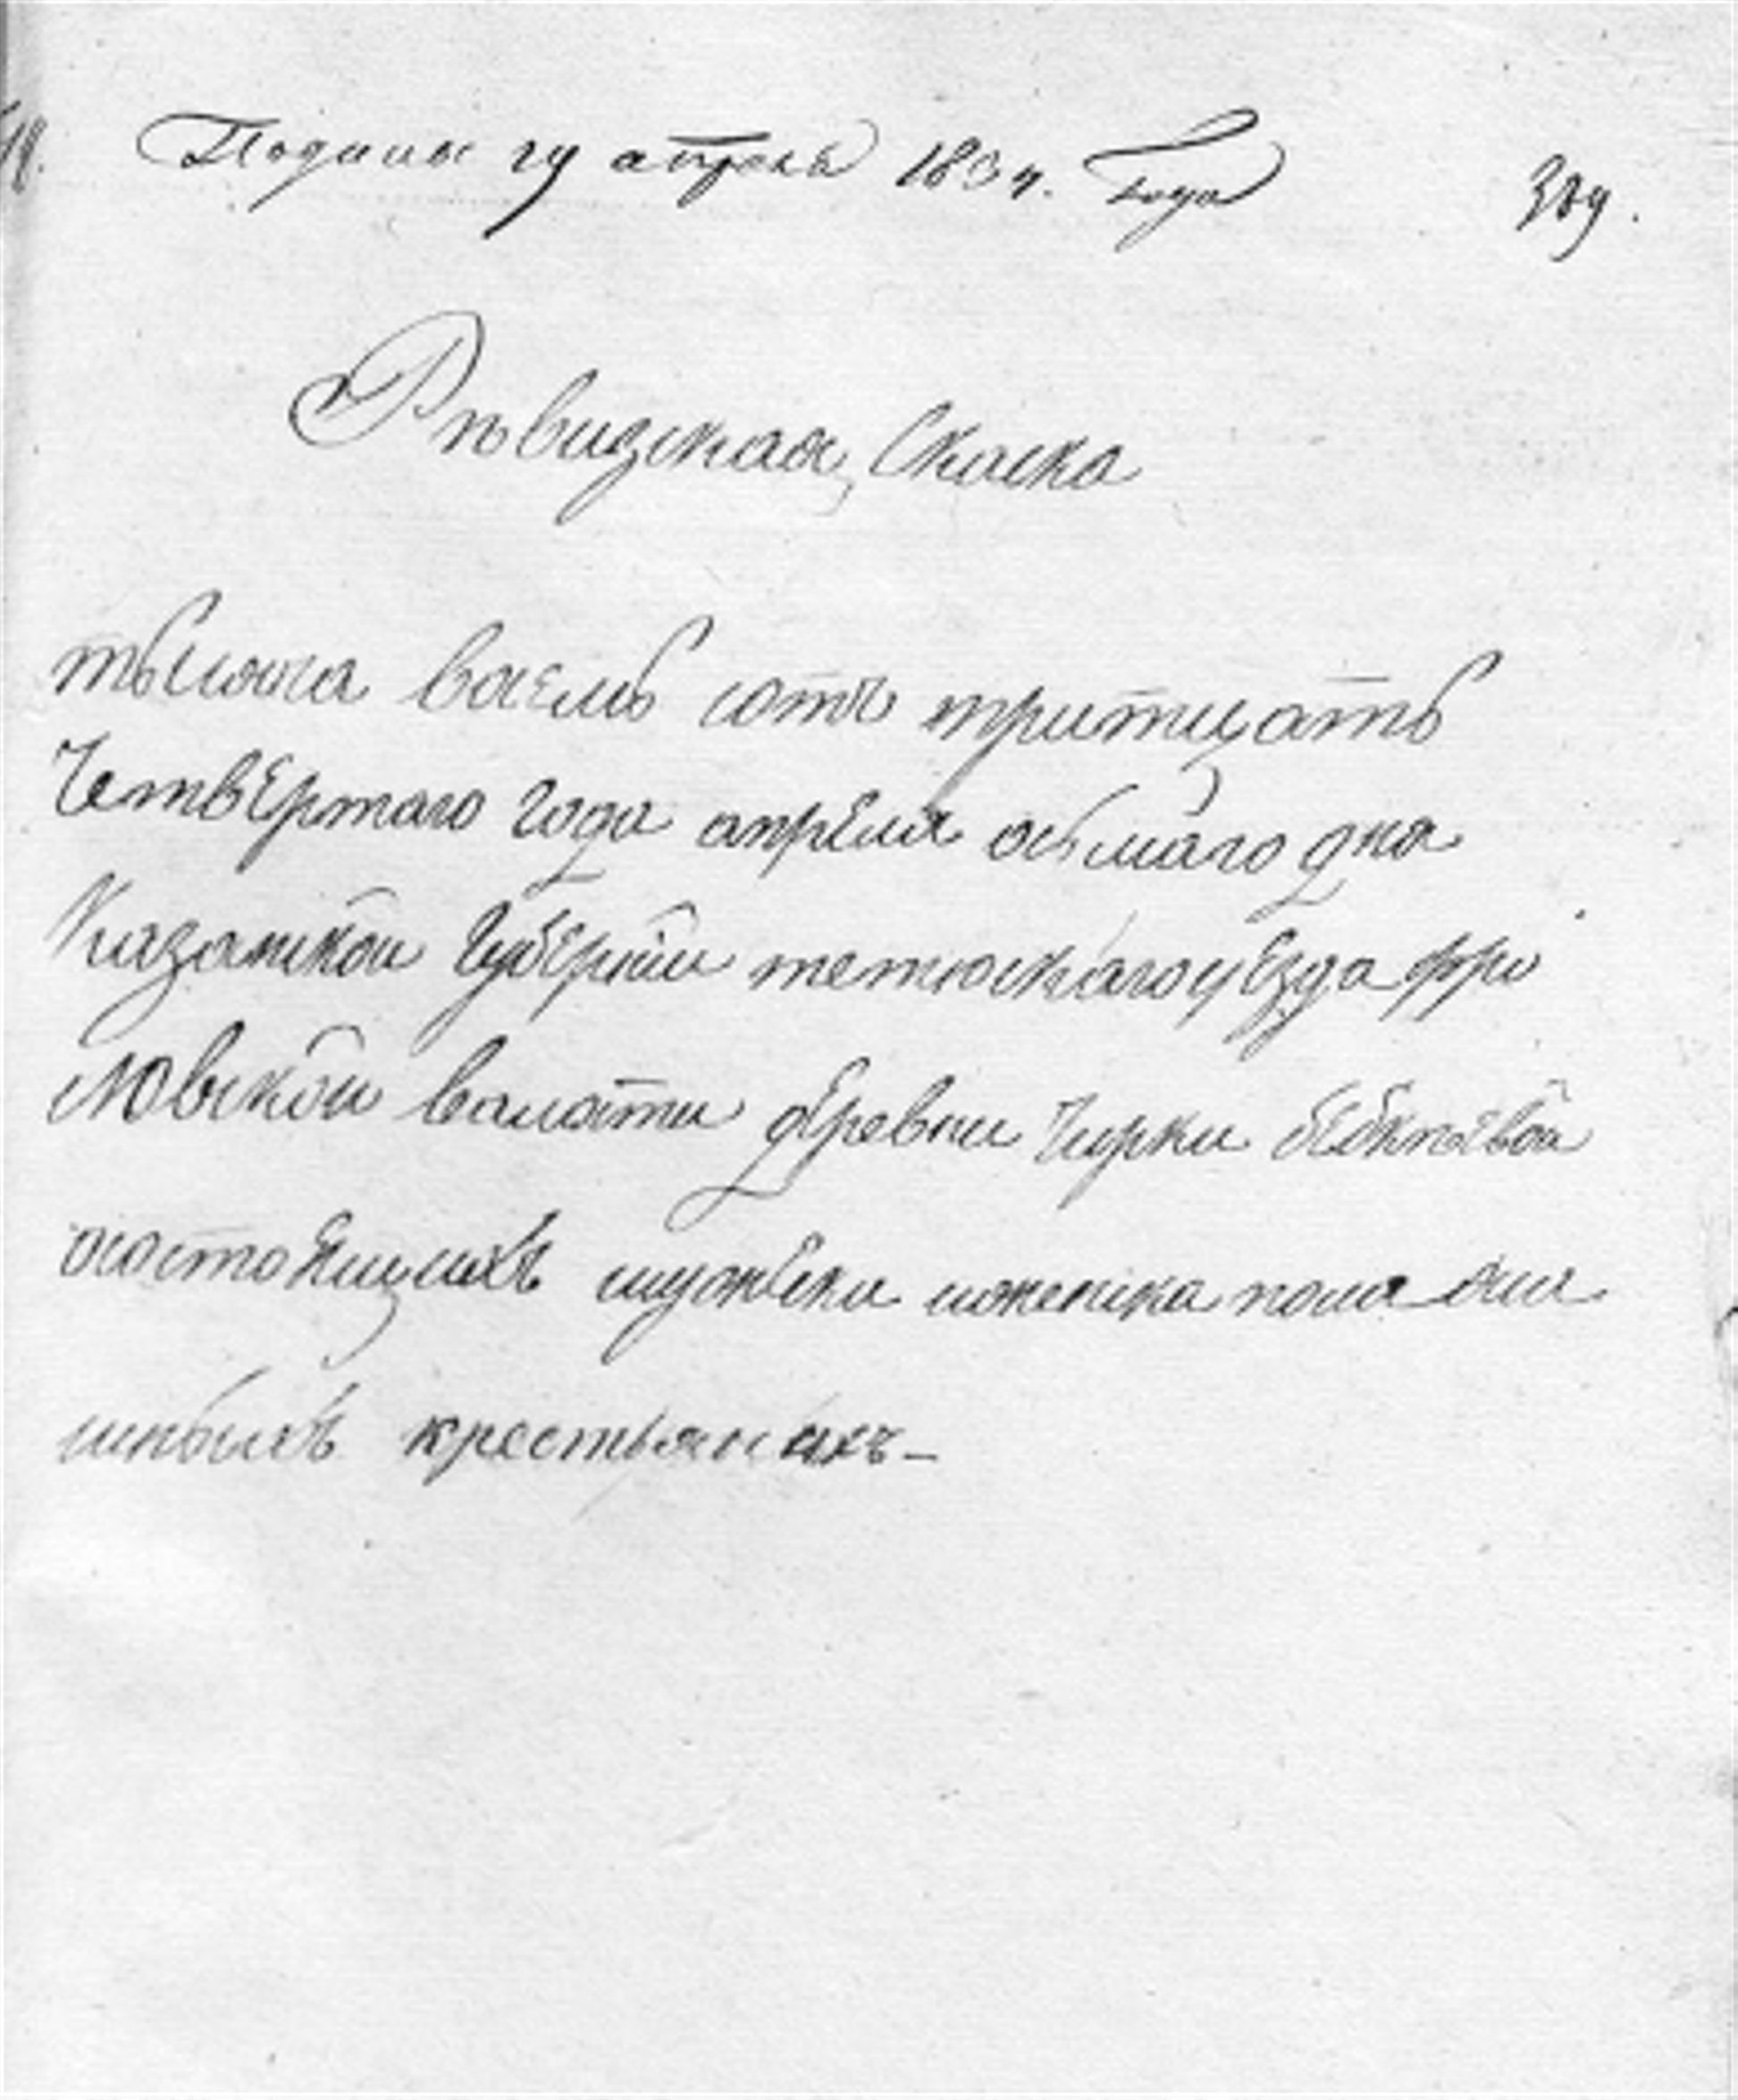 Подана апреля 1834. Года
Ревизская Скаска
тысяча васемь сотъ тритцать
Четвертаго года апреля осьмаго дня
Казанской губернии тетюскаго уезда фро
ловской валости деревни Чурки
осостоящихъ мужеска иженска пола
крестьянихъ